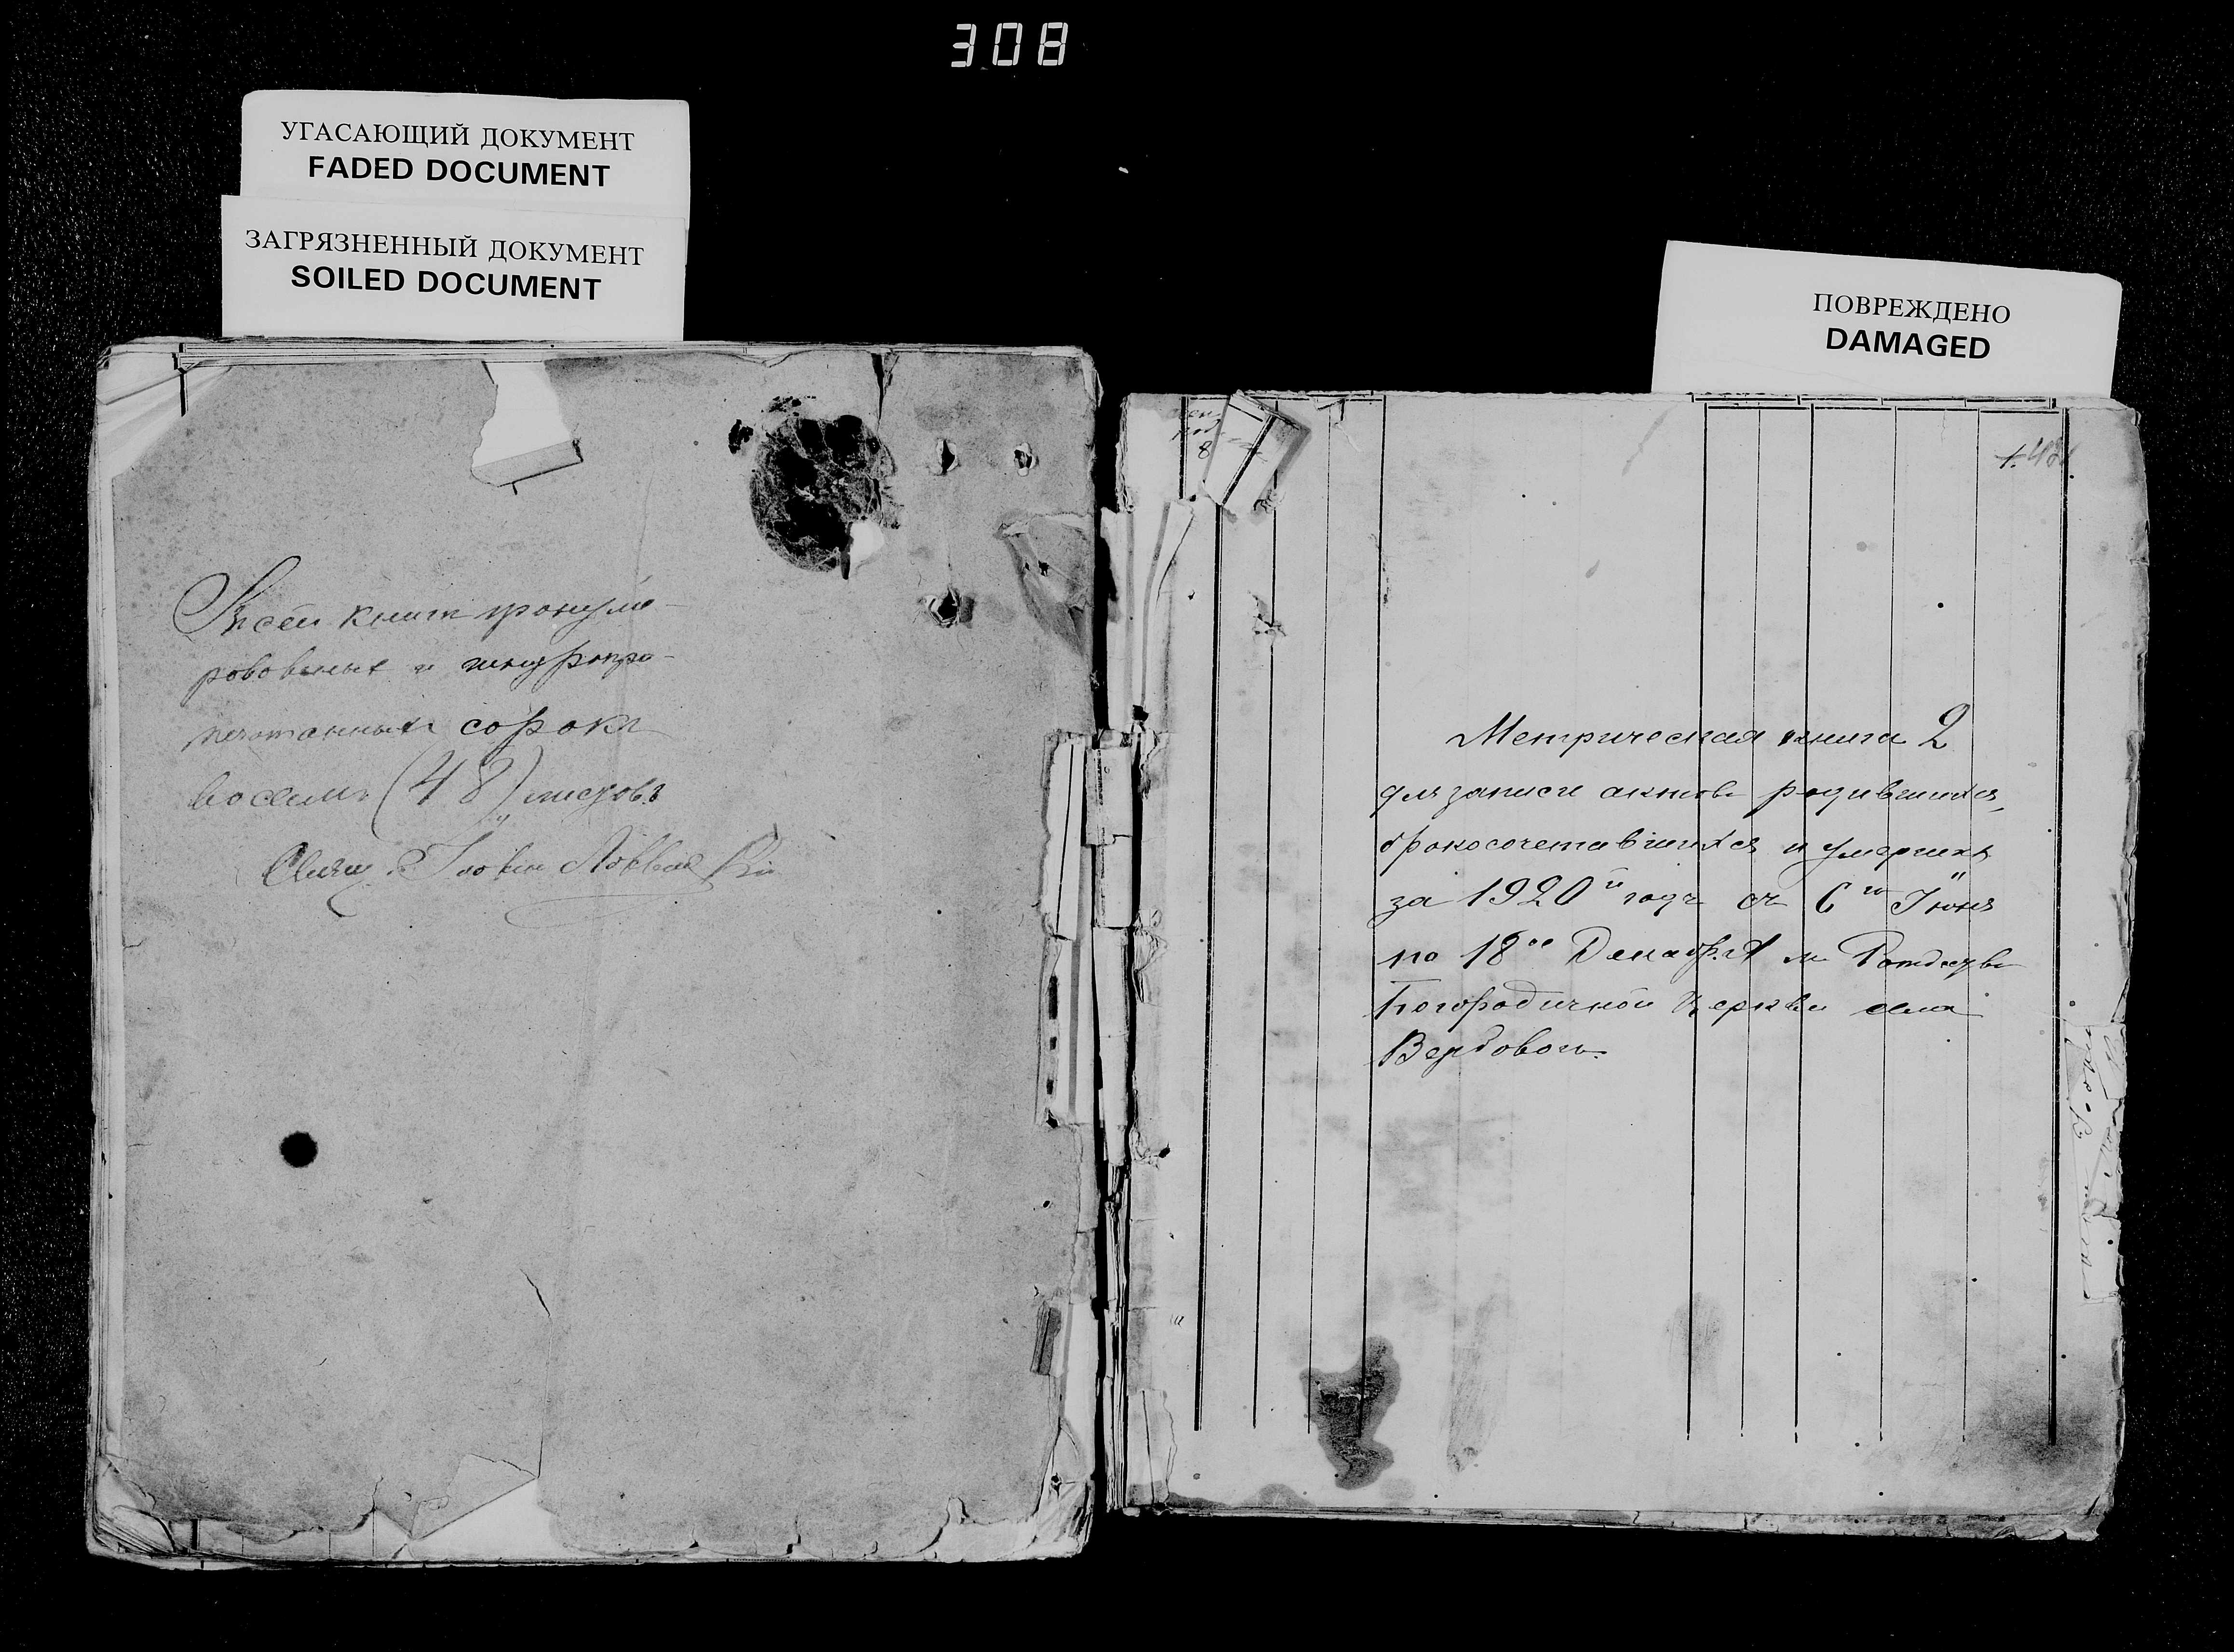 308
УГАСАЮЩИЙ ДОКУМЕНТ
FADED DOCUMENT
ЗАГРЯЗНЕННЫЙ ДОКУМЕНТ
SOILED DOCUMENT
ПОВРЕЖДЕНО
DAMAGED
В сей книги пронуме-
рованных и шнуропро-
печатанных сорокъ
восемь (48) листовъ
Свящ. Іоаннъ
Метрическая книга 2
для записи актовъ родившихся,
бракосочетавшихся и умершихъ
за 1920й годъ съ 6го Іюня
по 18ое Декабря м. Рождество
Богородичной Церкви села
Вербового.